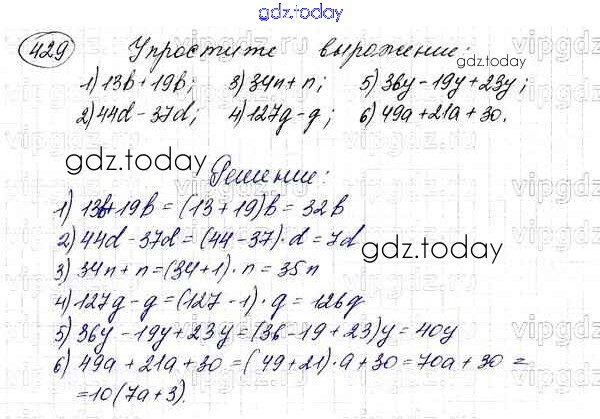 gdz.today
429 Упростите выражение:
1) 13b + 19b; 3) 34n + n; 5) 36y - 19y + 23y;
2) 44d - 37d; 4) 127q - q; 6) 49a + 21a + 30.
gdz.today
gdz.today
Решение:
1) 13b + 19b = (13 + 19)b = 32b
2) 44d - 37d = (44 - 37) · d = 7d
gdz.today
3) 34n + n = (34 + 1) · n = 35n
4) 127q - q = (127 - 1) · q = 126q
5) 36y - 19y + 23y = (36 - 19 + 23)y = 40y
6) 49a + 21a + 30 = (49 + 21) · a + 30 = 70a + 30 =
= 10(7a + 3).